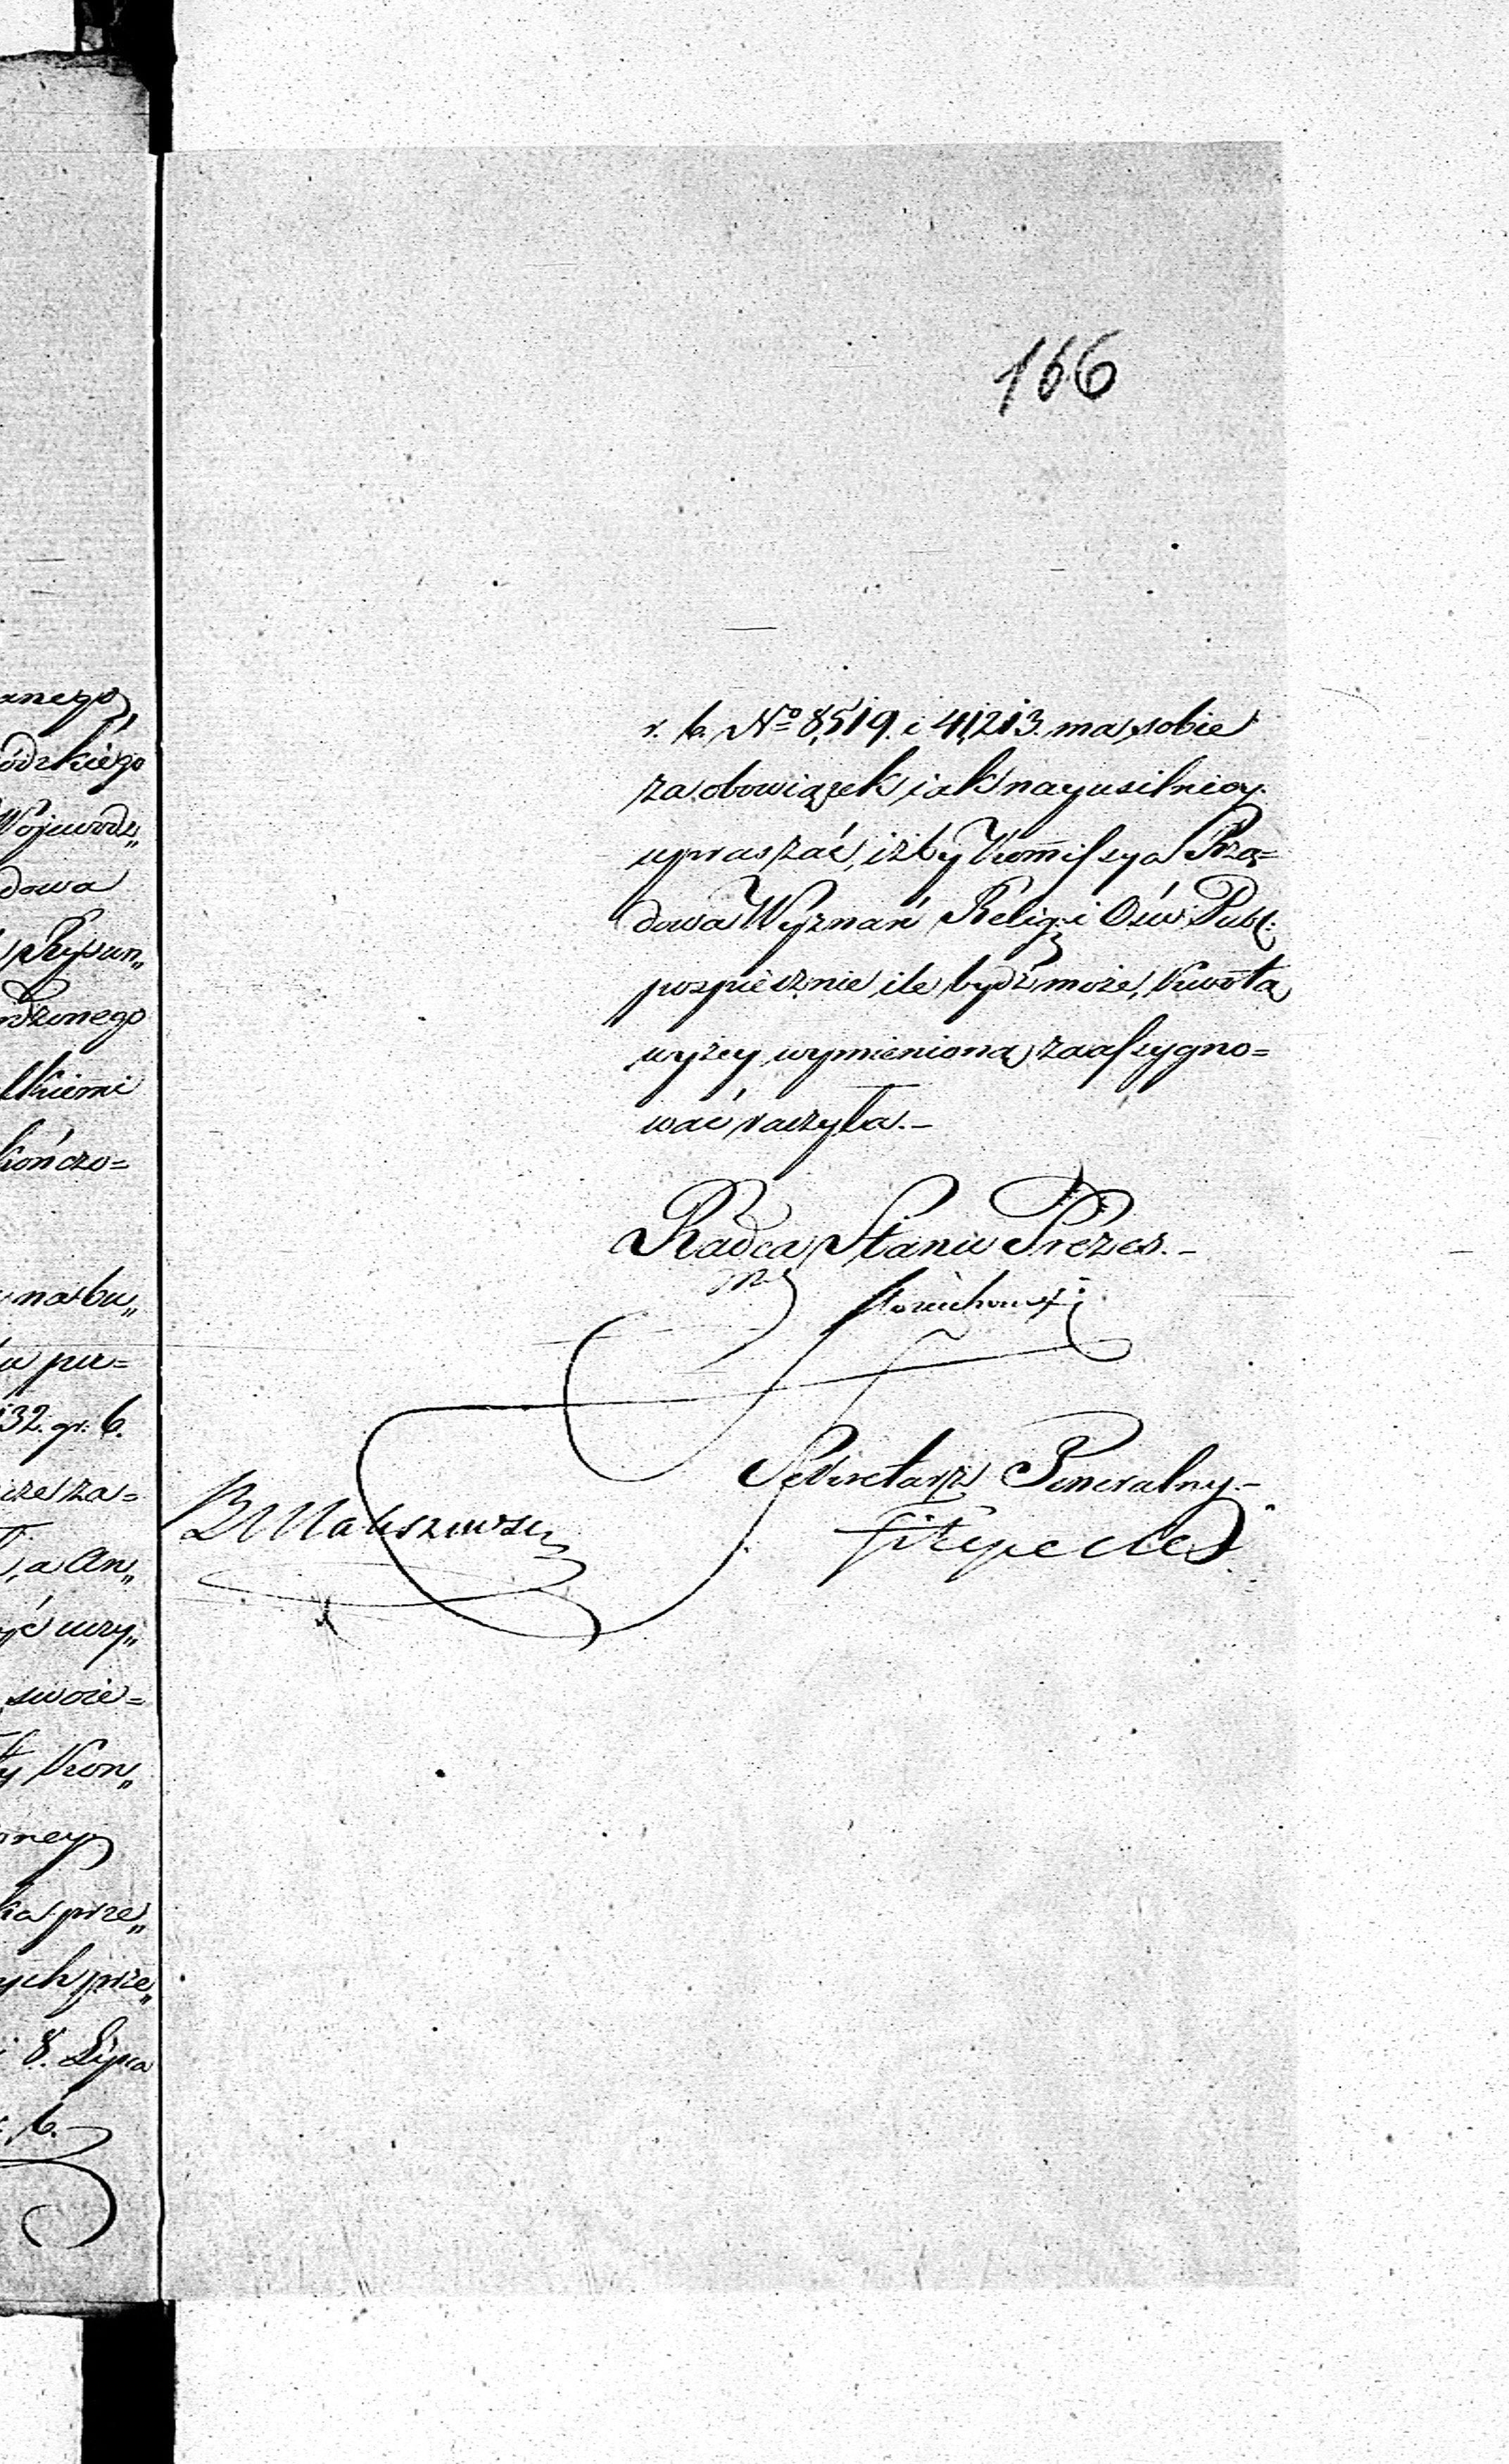 anego
ódzkiégo
Wojewodz„
dowa
Rysun„
rdzonego
lkiemi
kończo=
na bu„
u pu=
132. gr. 6.
cze za=
, a An„
yć uczy„
swoie=
ty Kon„
oney
ka prze„
ych prze„
i 8. Lipca
r. b.
166
r. b. Nº 8,519. i 41,213. ma sobie
za obowiązek iak nayusilniey
upraszać, iżby Kommissya Rzą=
dowa Wyznań Relig: i Ośw: Publ:
pospiesznie ile bydź może, kwotę
wyżey wymienioną zaassygno=
wać raczyła.-
Radca Stanu Prezes.-
Sekretarz Generalny.-
Filipecki
B Maliszewski